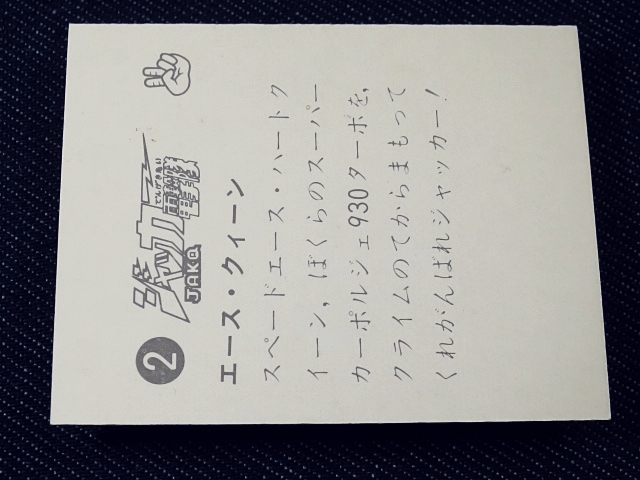 2
ジャッカー
でんげきたい
電撃隊
JAKQ
エース・クィーン
スペードエース・ハートク
イーン,ぼくらのスーパー
カーポルシェ930ターボを,
クライムのてからまもって
くれがんばれジャッカー!